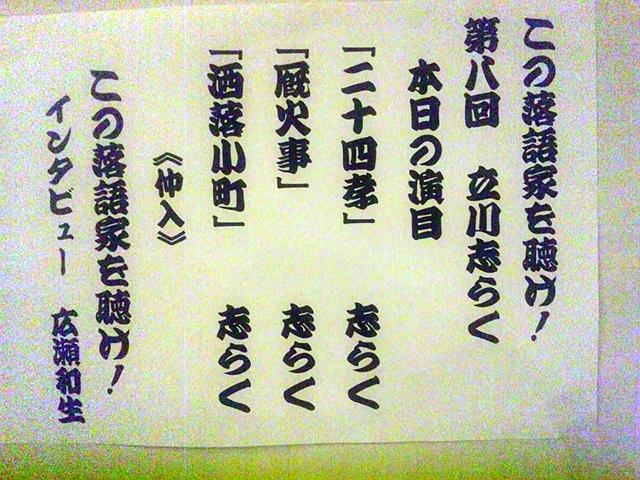 この落語家を聴け！
第八回　立川志らく
本日の演目
「二十四孝」　志らく
「厩火事」　志らく
「洒落小町」　志らく
《仲入》
この落語家を聴け！
インタビュー　広瀬和生